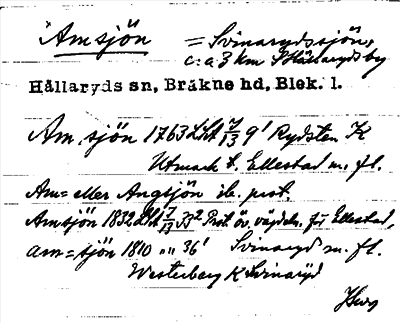 Amsjön = Svinarydssjön,
c:a 3 km S Hällaryds by
Hällaryds sn, Bräkne hd, Blek. l.
Am sjön 1763 LSA 7/13 9' Rydsten K
Utmark t. Ellestad m. fl.
Am= eller Angsjön ib. prot.
Amsjön 1832 LSA 7/13 33² Prot. öv. vägdeln. f. Ellestad,
am=sjön 1810 "" 36' Svinaryd m. fl.
Westerberg K Svinaryd